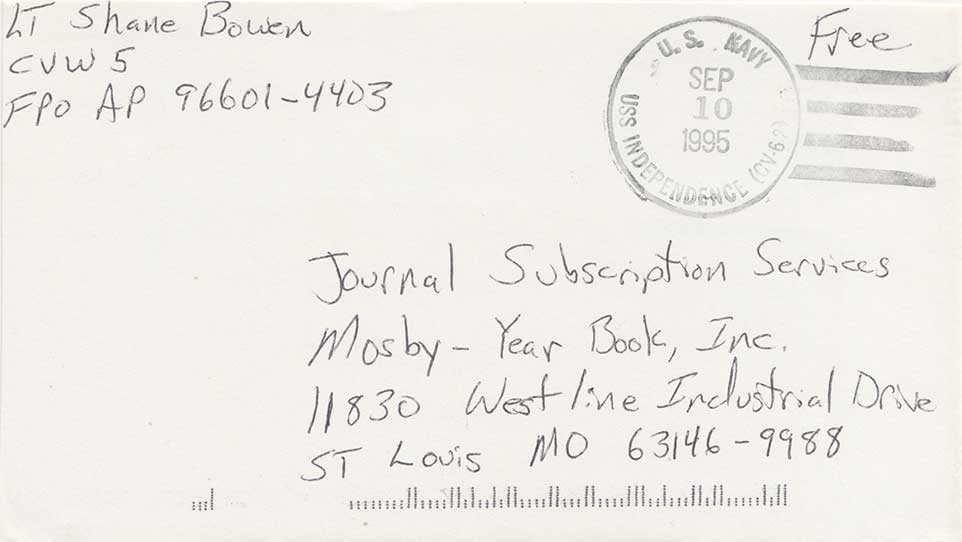 LT Shane Bowen
CVW 5
FPO AP 96601-4403
Free
U.S. NAVY
SEP
10
1995
USS INDEPENDENCE (CV-62)
Journal Subscription Services
Mosby - Year Book, Inc.
11830 Westline Industrial Drive
ST Louis MO 63146-9988